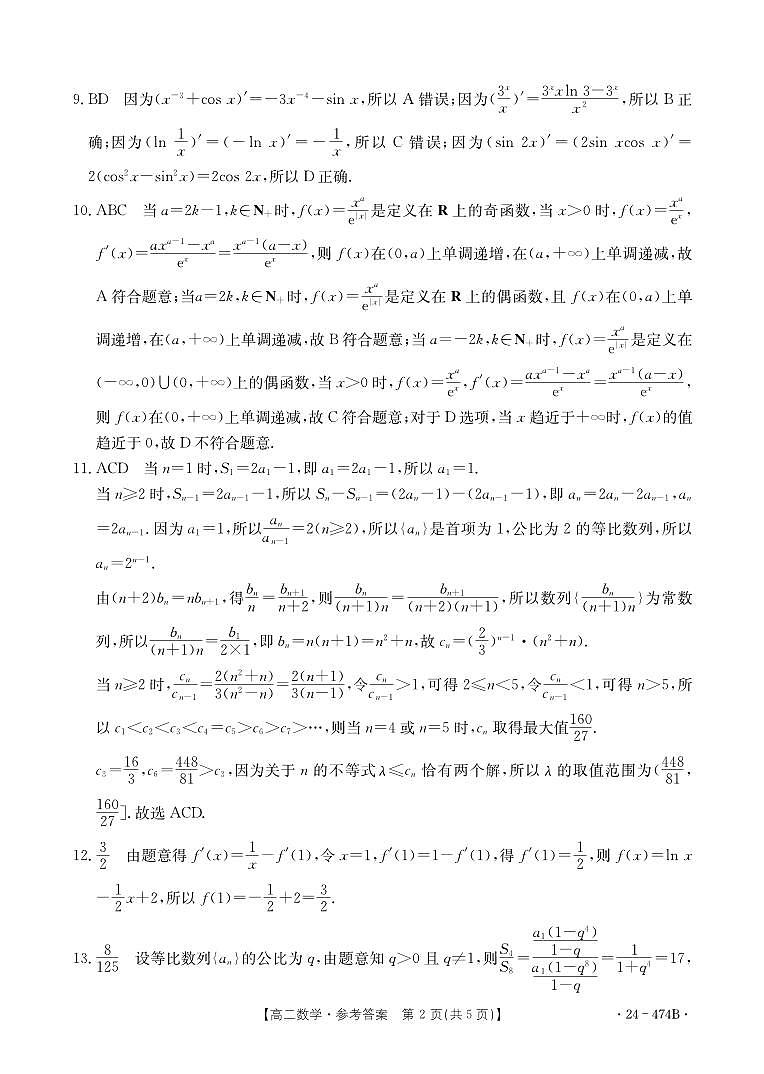 9. BD　因为(x⁻³+cos x)′=-3x⁻⁴-sin x,所以 A 错误;因为(3ˣ/x)′=(3ˣxln 3-3ˣ)/x²,所以 B 正
确;因为(ln 1/x)′=(-ln x)′=-1/x,所以 C 错误;因为(sin 2x)′=(2sin xcos x)′=
2(cos²x-sin²x)=2cos 2x,所以 D 正确.
10. ABC　当 a=2k-1,k∈N₊时,f(x)=xᵃ/e^|x|是定义在 R 上的奇函数,当 x>0 时,f(x)=xᵃ/eˣ,
f′(x)=(axᵃ⁻¹-xᵃ)/eˣ=xᵃ⁻¹(a-x)/eˣ,则 f(x)在(0,a)上单调递增,在(a,+∞)上单调递减,故
A 符合题意;当a=2k,k∈N₊时,f(x)=xᵃ/e^|x|是定义在 R 上的偶函数,且 f(x)在(0,a)上单
调递增,在(a,+∞)上单调递减,故 B 符合题意;当 a=-2k,k∈N₊时,f(x)=xᵃ/e^|x|是定义在
(-∞,0)∪(0,+∞)上的偶函数,当 x>0 时,f(x)=xᵃ/eˣ,f′(x)=(axᵃ⁻¹-xᵃ)/eˣ=xᵃ⁻¹(a-x)/eˣ,
则 f(x)在(0,+∞)上单调递减,故 C 符合题意;对于 D 选项,当 x 趋近于+∞时,f(x)的值
趋近于 0,故 D 不符合题意.
11. ACD　当 n=1 时,S₁=2a₁-1,即 a₁=2a₁-1,所以 a₁=1.
当 n≥2 时,Sₙ₋₁=2aₙ₋₁-1,所以 Sₙ-Sₙ₋₁=(2aₙ-1)-(2aₙ₋₁-1),即 aₙ=2aₙ-2aₙ₋₁,aₙ
=2aₙ₋₁.因为 a₁=1,所以aₙ/aₙ₋₁=2(n≥2),所以{aₙ}是首项为 1,公比为 2 的等比数列,所以
aₙ=2ⁿ⁻¹.
由(n+2)bₙ=nbₙ₊₁,得bₙ/n=bₙ₊₁/(n+2),则bₙ/((n+1)n)=bₙ₊₁/((n+2)(n+1)),所以数列{bₙ/((n+1)n)}为常数
列,所以bₙ/((n+1)n)=b₁/(2×1),即 bₙ=n(n+1)=n²+n,故 cₙ=(2/3)ⁿ⁻¹·(n²+n).
当 n≥2 时,cₙ/cₙ₋₁=2(n²+n)/(3(n²-n))=2(n+1)/(3(n-1)),令cₙ/cₙ₋₁>1,可得 2≤n<5,令cₙ/cₙ₋₁<1,可得 n>5,所
以 c₁<c₂<c₃<c₄=c₅>c₆>c₇>…,则当 n=4 或 n=5 时,cₙ 取得最大值160/27.
c₃=16/3,c₆=448/81>c₃,因为关于 n 的不等式 λ≤cₙ 恰有两个解,所以 λ 的取值范围为(448/81,
160/27].故选 ACD.
12. 3/2　由题意得 f′(x)=1/x-f′(1),令 x=1,f′(1)=1-f′(1),得 f′(1)=1/2,则 f(x)=ln x
-1/2x+2,所以 f(1)=-1/2+2=3/2.
13. 8/125　设等比数列{aₙ}的公比为 q,由题意知 q>0 且 q≠1,则S₄/S₈=(a₁(1-q⁴)/(1-q))/(a₁(1-q⁸)/(1-q))=1/(1+q⁴)=17,
【高二数学·参考答案　第 2 页(共 5 页)】　·24-474B·